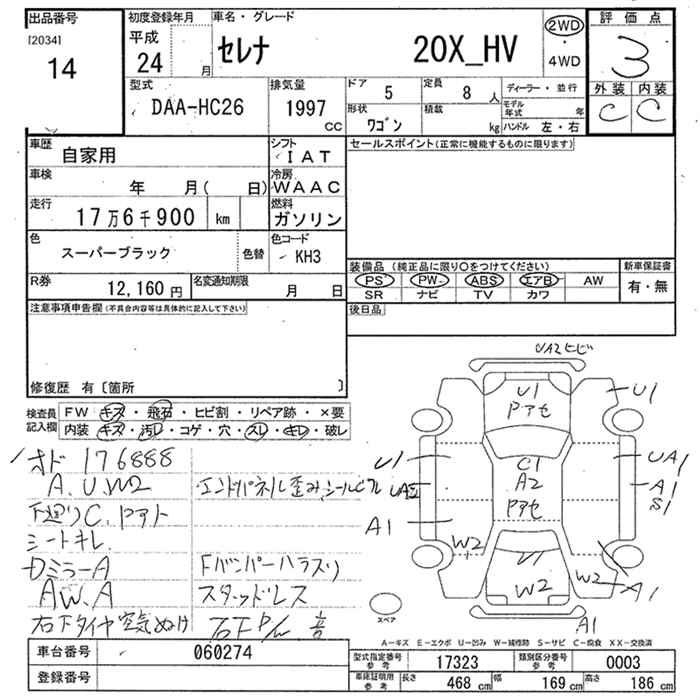 出品番号
[2034]
14
初度登録年月
平成
24 月
車名・グレード
セレナ 20X_HV
2WD
・
4WD
評価点
3
外装 内装
C C
型式
DAA-HC26
排気量
1997
CC
ドア
5
定員
8 人
形状
ワゴン
積載
kg
ディーラー・並行
モデル年式 年
ハンドル 左・右
車歴
自家用
シフト
IAT
車検
年 月( 日)
冷房
WAAC
走行
17万6千900 km
燃料
ガソリン
色
スーパーブラック
色替
色コード
KH3
R券
12,160 円
名変通知期限
月 日
セールスポイント(正常に機能するものに限ります)
装備品 (純正品に限り○をつけてください)
PS PW ABS エアB AW
SR ナビ TV カワ
新車保証書
有・無
後日品
注意事項申告欄(不具合内容等は具体的に記入して下さい)
修復歴 有〔箇所 〕
検査員
記入欄
FW キズ・飛石・ヒビ割・リペア跡・×要
内装 キズ・汚レ・コゲ・穴・スレ・キレ・破レ
オド 176888
A.U.W2
エンドパネル歪み
下廻りC.
シートキレ.
DミラーA
Fバンパーハラスリ
AW.A
スタッドレス
右下タイヤ空気ぬけ
UA2 ヒビ
U1
U1
U1
C1
A2
UA1
A1
S1
A1
W2
W2
W2
A1
A1
スペア
A-キズ E-エクボ U-凹み W-補修跡 S-サビ C-腐食 XX-交換済
車台番号
060274
登録番号
型式指定番号
参考
17323
類別区分番号
参考
0003
車体証明用
参考
長さ 468 cm
幅 169 cm
高さ 186 cm